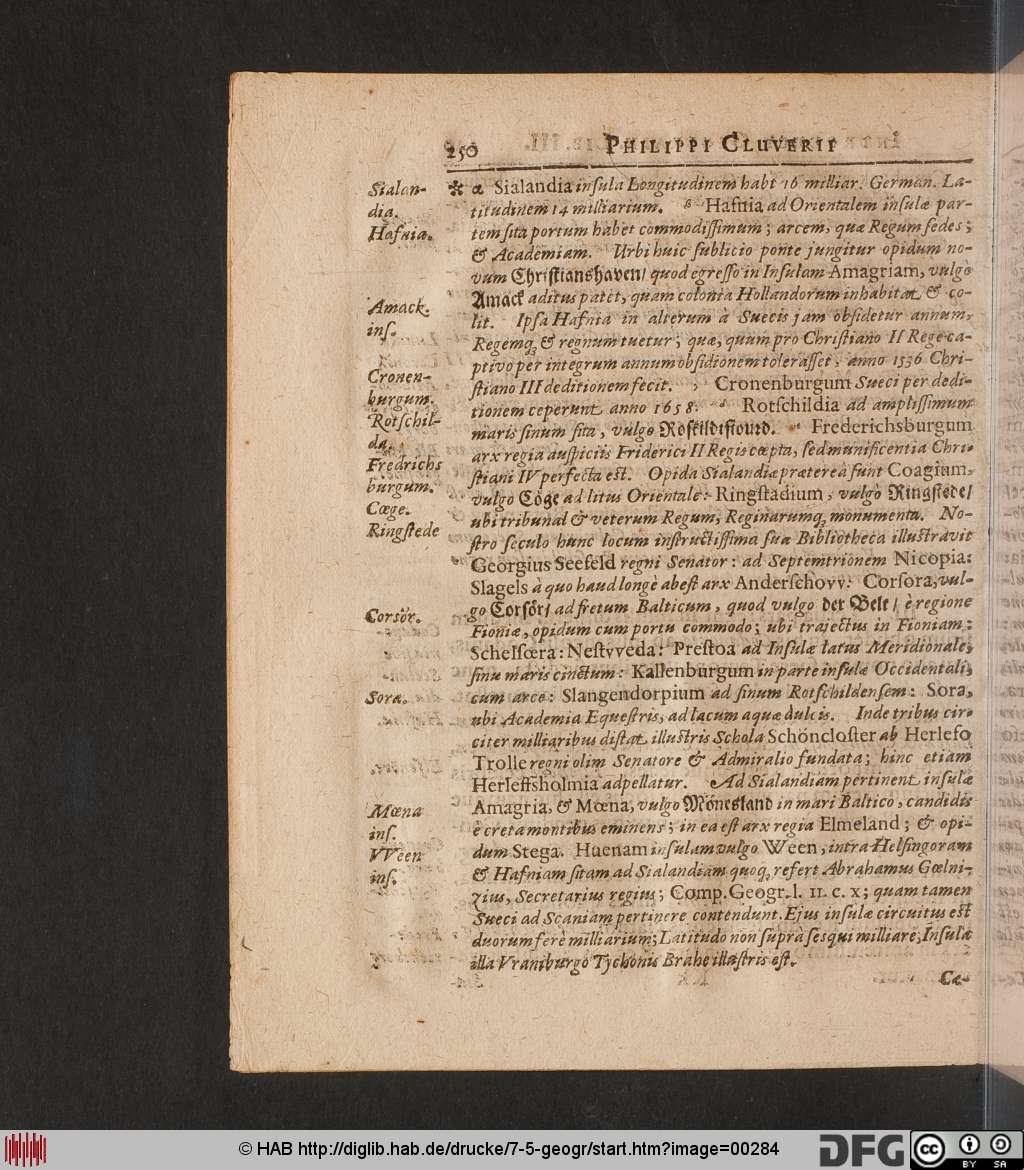 250 PHILIPPI CLUVERII
Sialan-
dia.
Hafnia.
Amack.
ins.
Cronen-
burgum.
Rotschil-
da.
Fredrichs
burgum.
Cœge.
Ringstede
Corsör.
Sora.
Mœna
ins.
VVeen
ins.
* α Sialandia insula Longitudinem habt 16 milliar. German. La-
titudinem 14 milliarium. β Hafnia ad Orientalem insulæ par-
tem sita portum habet commodissimum; arcem, quæ Regum sedes;
& Academiam. Urbi huic sublicio ponte jungitur opidum no-
vum Christianshaven/ quod egresso in Insulam Amagriam, vulgò
Amack aditus patet, quam colonia Hollandorum inhabitat & co-
lit. Ipsa Hafnia in alterum à Suecis jam obsidetur annum,
Regemq; & regnum tuetur; quæ, quum pro Christiano II Rege ca-
ptivo per integrum annum obsidionem tolerasset, anno 1536 Chri-
stiano III deditionem fecit. Cronenburgum Sueci per dedi-
tionem ceperunt anno 1658. Rotschildia ad amplissimum
maris sinum sita, vulgo Roskildifiourd. Frederichsburgum
arx regia auspiciis Friderici II Regis cœpta, sed munificentia Chri-
stiani IV perfecta est. Opida Sialandiæ præterea sunt Coagium,
vulgo Cöge ad litus Orientale: Ringstadium, vulgò Ringstede/
ubi tribunal & veterum Regum, Reginarumq; monumenta. No-
stro seculo hunc locum instructissima sua Bibliotheca illustravit
Georgius Seefeld regni Senator: ad Septemtrionem Nicopia:
Slagels à quo haud longè abest arx Anderschovv: Corsora, vul-
go Corsör/ ad fretum Balticum, quod vulgo der Belt/ è regione
Fioniæ, opidum cum portu commodo; ubi trajectus in Fioniam:
Schelscœra: Nestvveda: Prestoa ad Insulæ latus Meridionale,
sinu maris cinctum: Kallenburgum in parte insulæ Occidentali,
cum arce: Slangendorpium ad sinum Rotschildensem: Sora,
ubi Academia Equestris, ad lacum aquæ dulcis. Inde tribus cir-
citer milliaribus distat illustris Schola Schöncloster ab Herlefo
Trolle regni olim Senatore & Admiralio fundata; hinc etiam
Herleffsholmia adpellatur. Ad Sialandiam pertinent insulæ
Amagria, & Mœna, vulgo Mönesland in mari Baltico, candidis
è creta montibus eminens; in ea est arx regia Elmeland; & opi-
dum Stega. Huenam insulam vulgo Ween, intra Helsingoram
& Hafniam sitam, ad Sialandiam quoq; refert Abrahamus Gœlni-
zius, Secretarius regius; Comp. Geogr. l. 11. c. x; quam tamen
Sueci ad Scaniam pertinere contendunt. Ejus insulæ circuitus est
duorum ferè milliarium; Latitudo non suprà sesqui milliare, Insula
illa Vraniburgo Tychonis Brahe illustris est.
Cæ-
© HAB http://diglib.hab.de/drucke/7-5-geogr/start.htm?image=00284
DFG
cc
BY SA